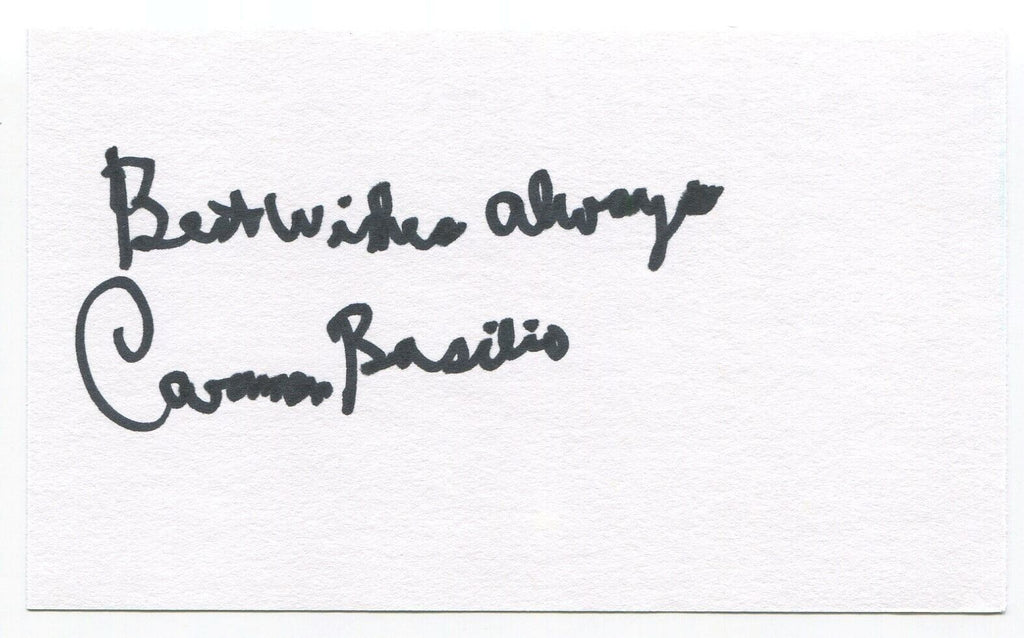 Best Wishes always
Carmen Basilio